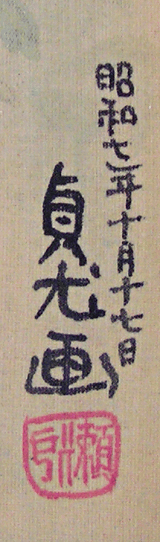 昭和七年十月十七日
貞光画